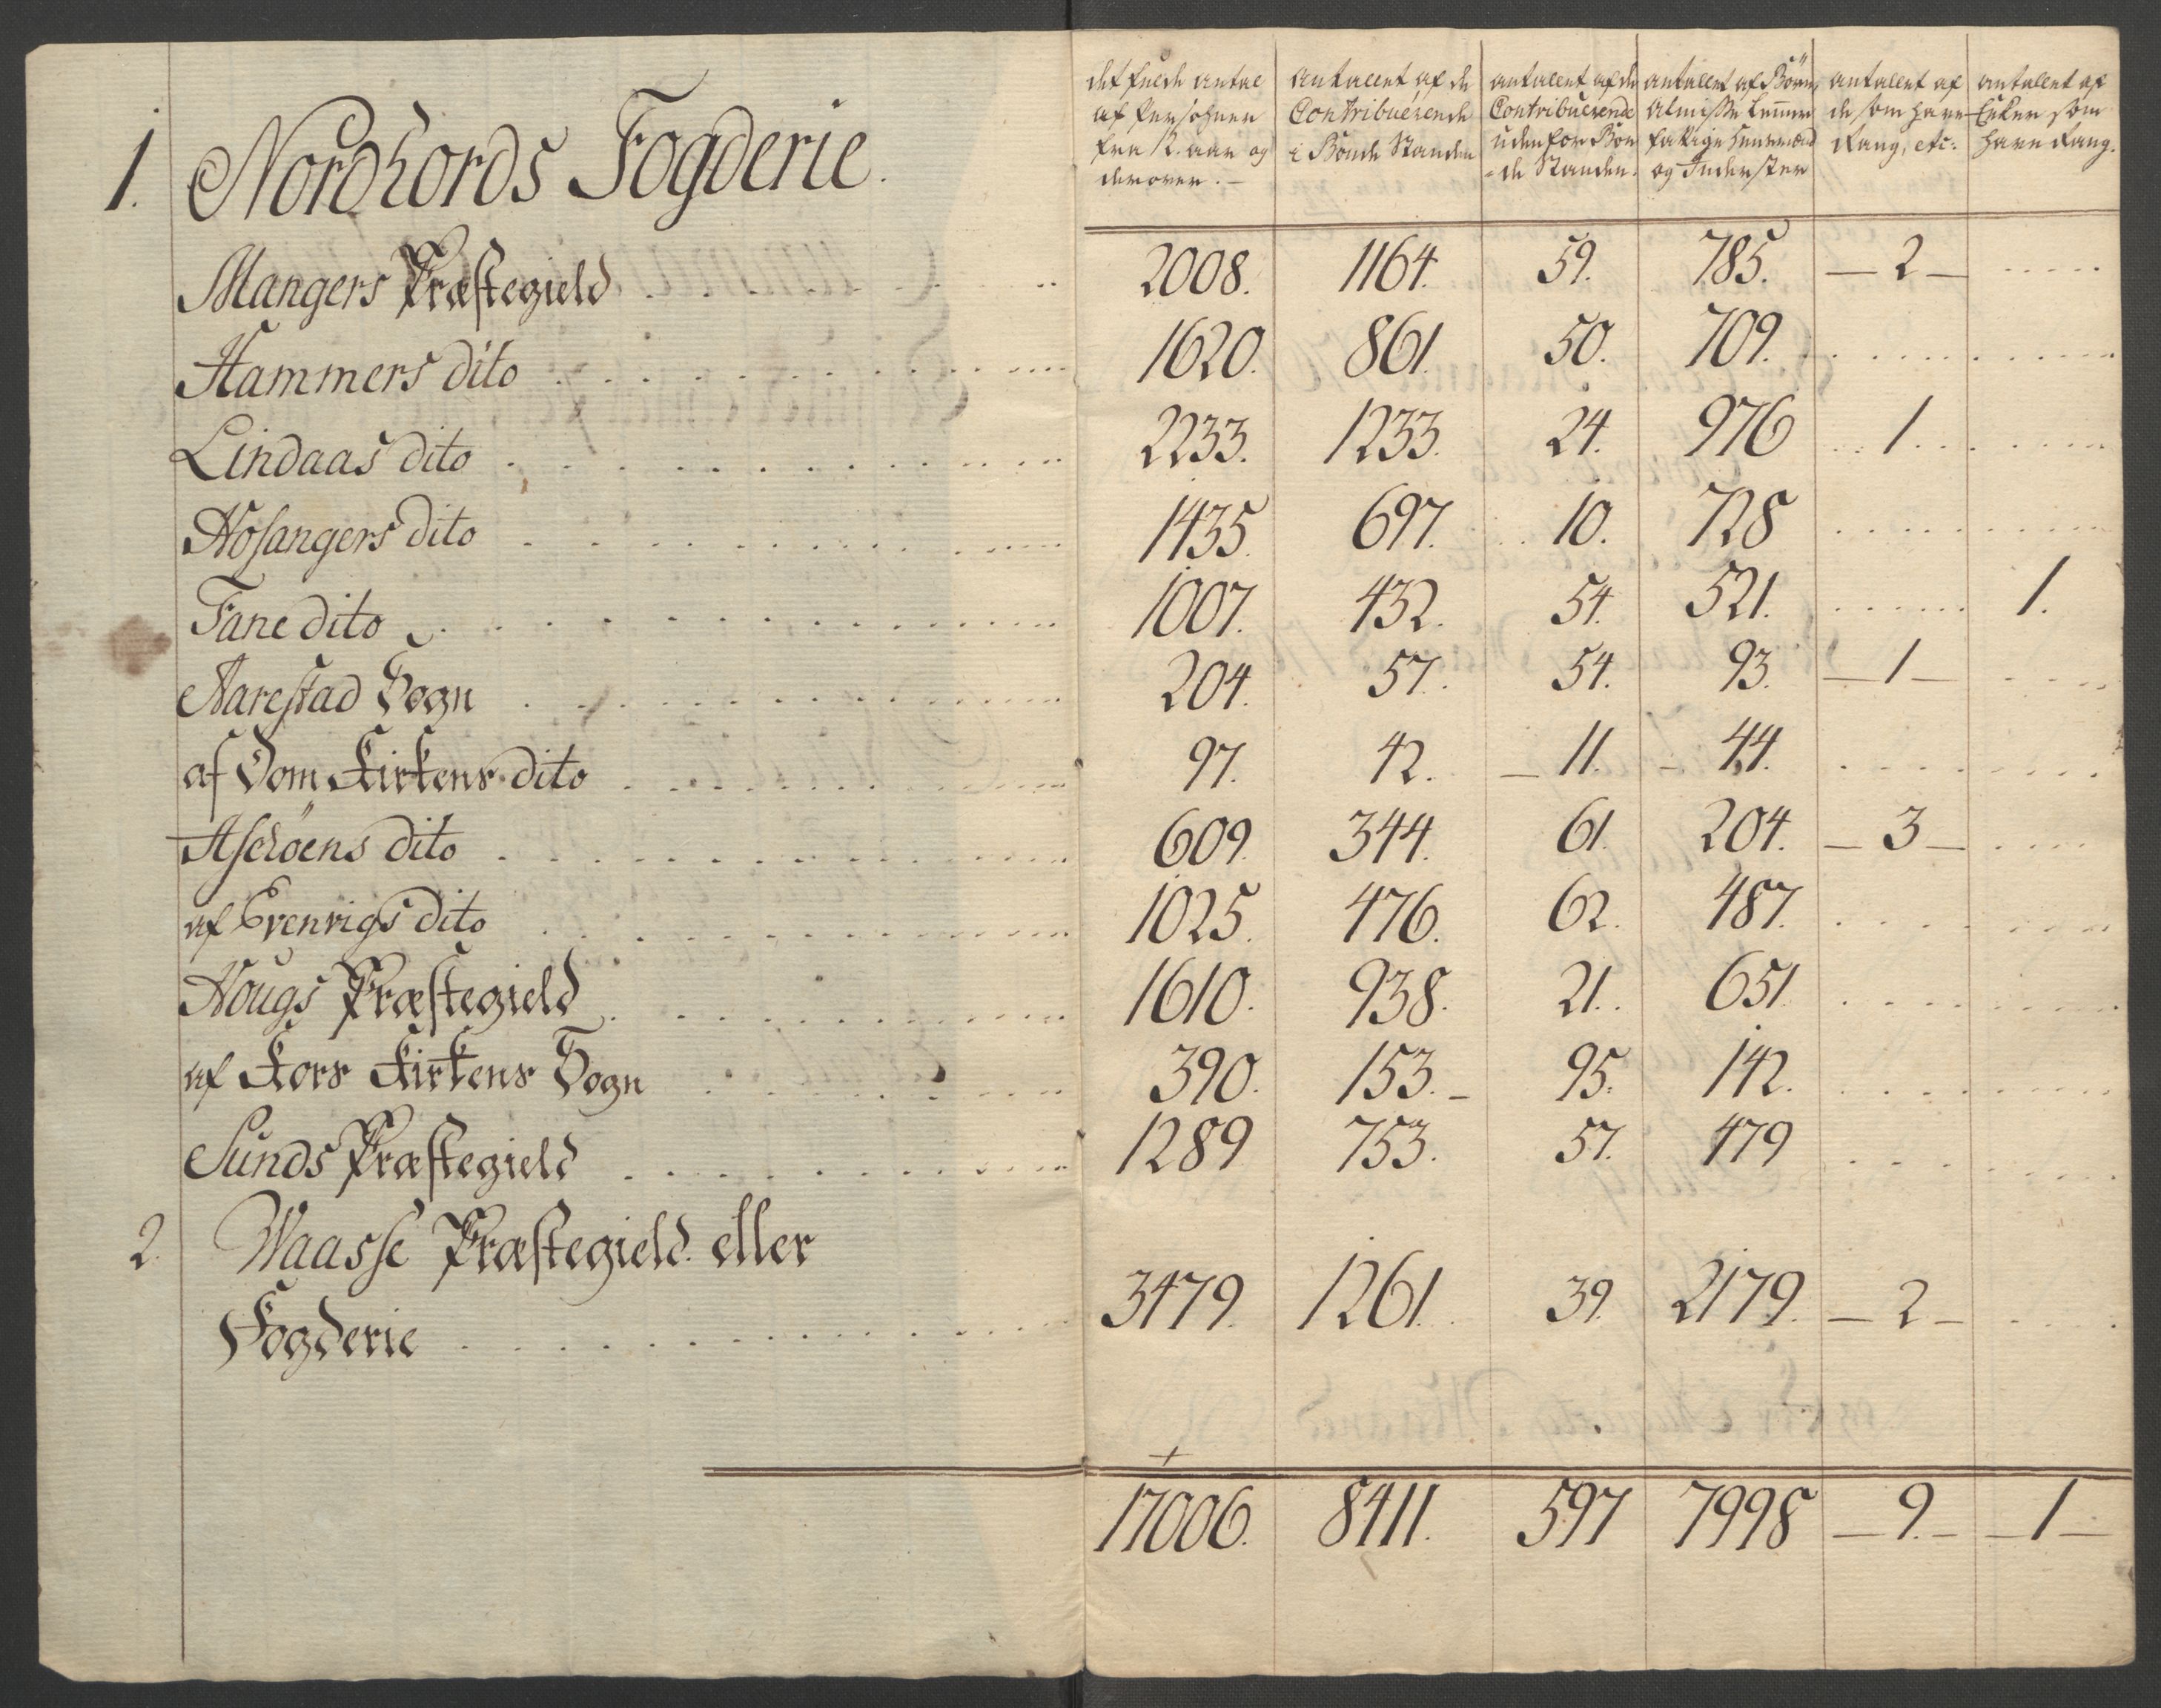 det fulde antal
af Personer
fra 12. aar og
derover.
Antallet af de
Contribuerende
i Bonde Standen
antallet af de
Contribuerende
uden for Bon
=de Standen.
antallet af Börn,
Almisse Lemmer
fattige Huusmænd
og Inderster
antallet af
de som have
Rang, etc:
antallet af
Enker som
have Rang.
1. Nordhords Fogderie.
Mangers Præstegield 2008. 1164. 59. 785. 2
Hammers dito 1620. 861. 50. 709.
Lindaas dito 2233. 1233. 24. 976 1
Hosangers dito 1435. 697. 10. 728
Fane dito 1007. 432. 54. 521. 1.
Aarestad Sogn 204. 57. 54. 93. 1
af Dom Kirkens dito 97. 42. 11. 44.
Aschöens dito 609. 344. 61. 204. 3
af Evenvigs dito 1025. 476. 62. 487.
Hougs Præstegield 1610. 938. 21. 651.
af Kors Kirkens Sogn 390. 153. 95. 142.
Sunds Præstegield 1289 753. 57. 479
2. Waasse Præstegield eller
Fogderie 3479. 1261. 39. 2179. 2
17006. 8411. 597 7998 9. 1